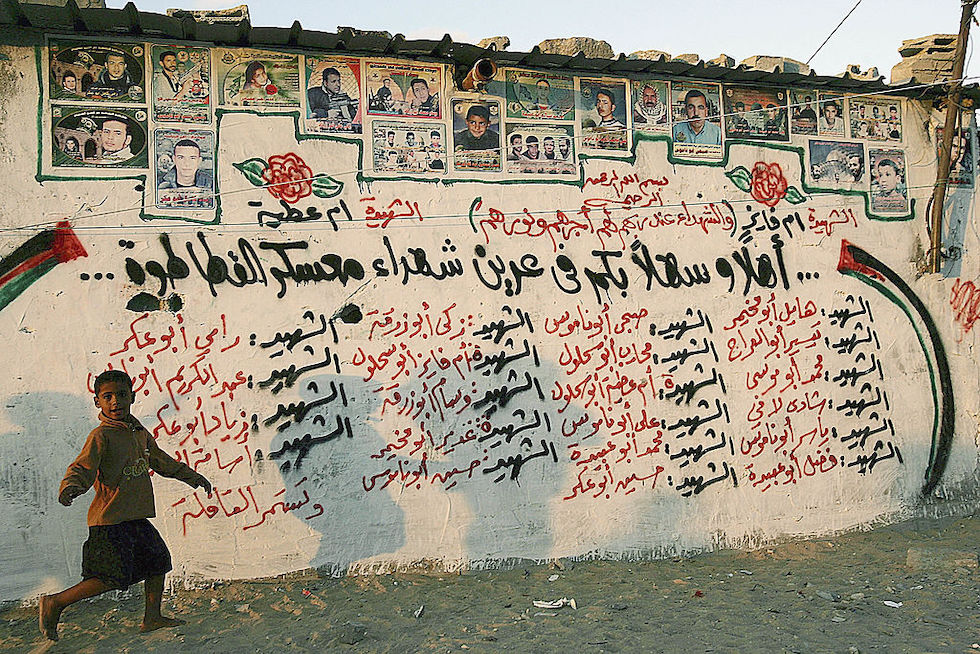 بسم الله الرحمن
الرحيم
الشهيدة ام فايز (والشهداء عند ربهم لهم أجرهم ونورهم) الشهيدة ام عطية
... أهلاً وسهلاً بكم في عرين شهداء معسكر القطاطوة ...
الشهيد: هايل أبو مخيمر
الشهيد: تيسير أبو
الشهيد: محمد أبو موسى
الشهيد: شادي لافي
الشهيد: ياسر أبو ناموس
الشهيد: فضل أبو عبيدة
الشهيد: صبحي أبو ناموس
الشهيد: محارب أبو سحلول
الشهيدة أم عطية أبو سحلول
الشهيد: علي أبو ناموس
الشهيد: محمد أبو عبيدة
الشهيد: حسين أبو عكر
الشهيد: زكي أبو زرقة
الشهيدة أم فايز أبو سحلول
الشهيد: وسام أبو زرقة
الشهيدة غدير أبو مخيمر
الشهيد: حسين أبو ناموس
الشهيد: رامي أبو عكر
الشهيد: عبد الكريم أبو
الشهيد: زياد أبو عكر
الشهيد: أسامة
وتستمر القافلة